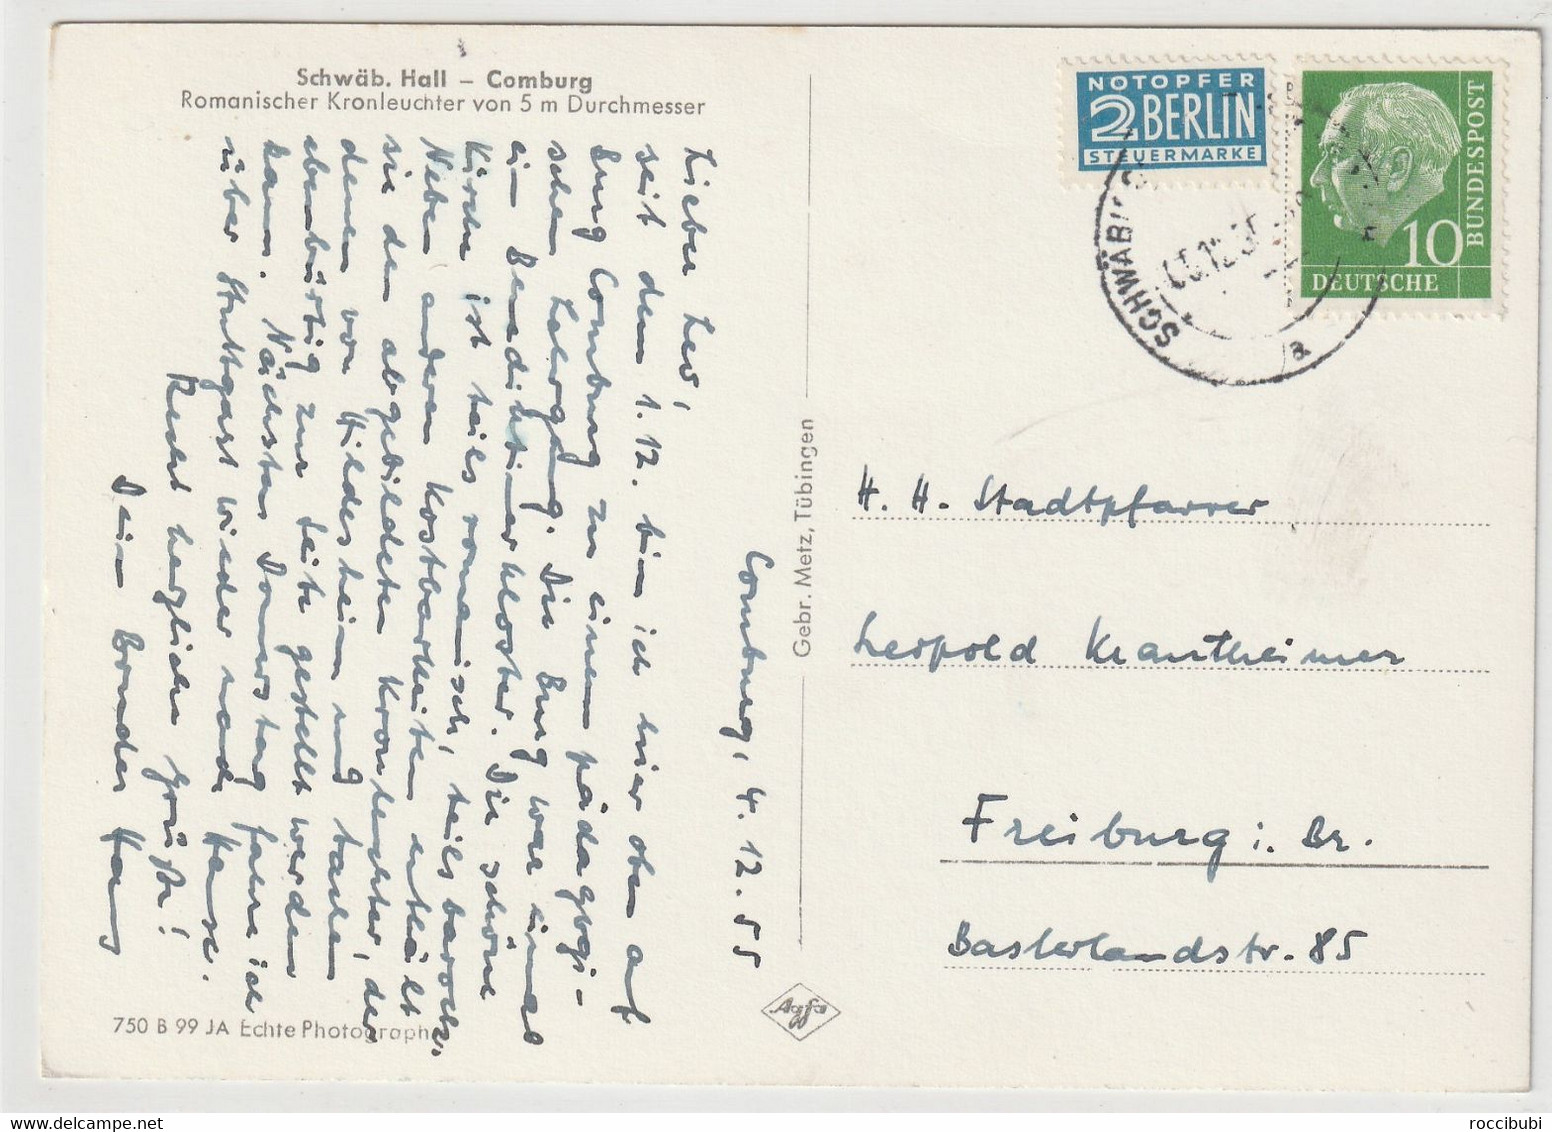 Schwäb. Hall – Comburg
Romanischer Kronleuchter von 5 m Durchmesser
Comburg, 4. 12. 55
Lieber Leo!
seit dem 1. 12. bin ich hier oben auf
Burg Comburg zu einem pädagogi-
schen Lehrgang. Die Burg war einmal
ein Benediktinerkloster. Die schöne
Kirche ist teils romanisch, teils barock.
Neben anderen Kostbarkeiten enthält
sie den abgebildeten Kronleuchter, der
denen von Hildesheim und Aachen
ebenbürtig zur Seite gestellt werden
kann. Nächsten Donnerstag fahre ich
über Stuttgart wieder nach Hause.
Recht herzliche Grüße!
Dein Bruder Hans
750 B 99 JA Echte Photograph
Gebr. Metz, Tübingen
Agfa
NOTOPFER
2 BERLIN
STEUERMARKE
10
DEUTSCHE
BUNDESPOST
SCHWÄBISCH
a
H. H. Stadtpfarrer
Leopold Krautheimer
Freiburg i. Br.
Baslerlandstr. 85
roccibubi